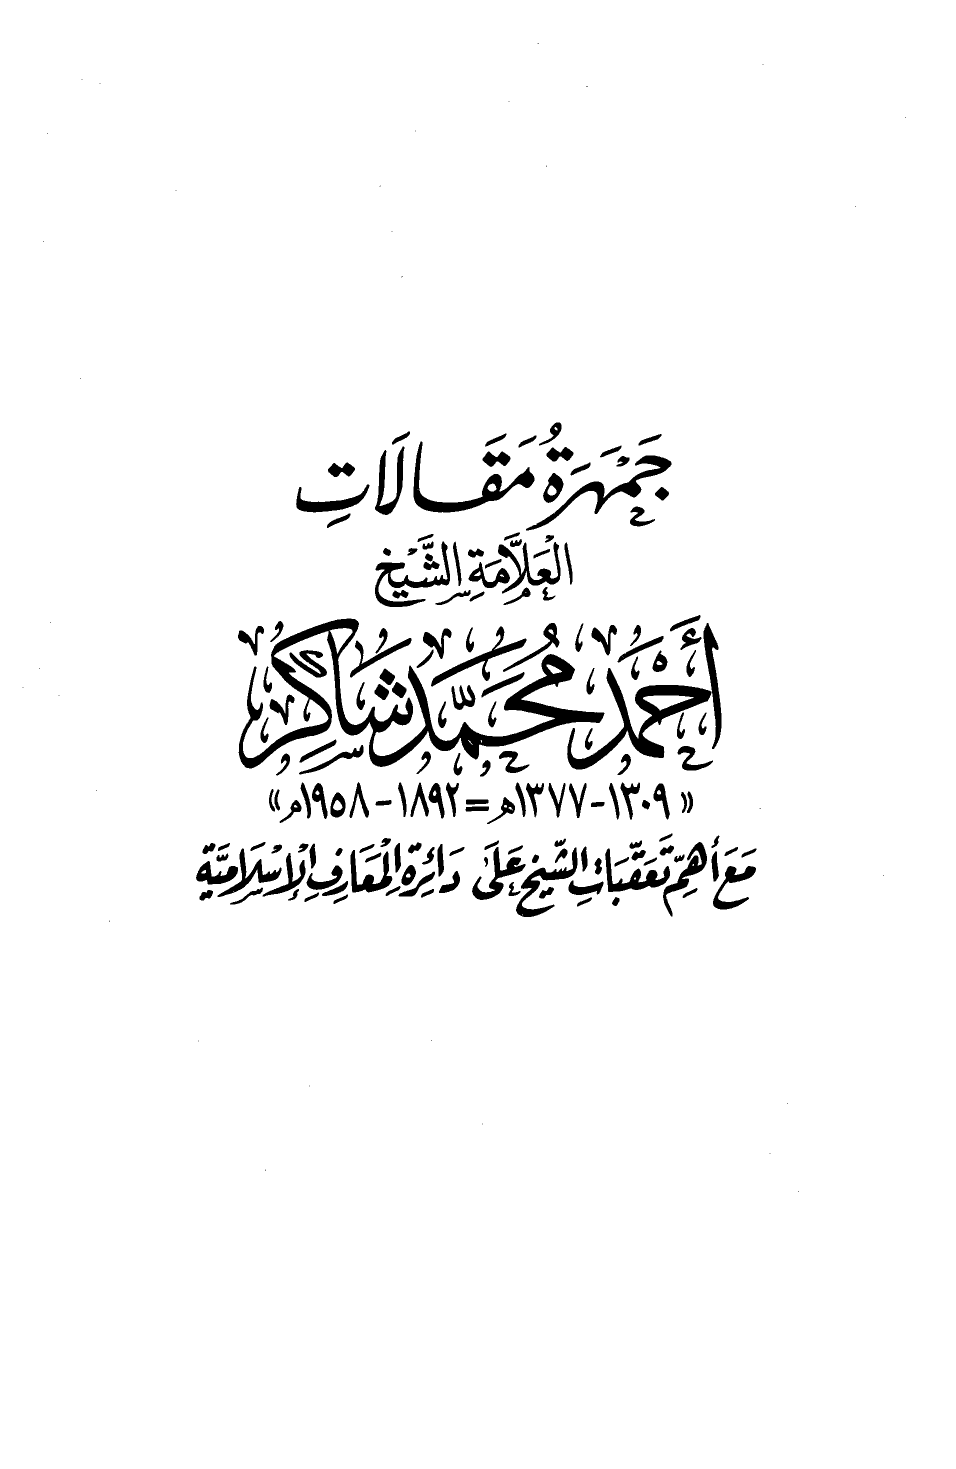 جَمْهَرَةُ مَقَالَاتِ
العَلَّامَةِ الشَّيْخِ
أَحْمَد مُحَمَّد شَاكِر
«١٣٠٩-١٣٧٧هـ = ١٨٩٢-١٩٥٨م»
مَعَ أَهَمِّ تَعَقُّبَاتِ الشَّيْخِ عَلَى دَائِرَةِ الْمَعَارِفِ الْإِسْلَامِيَّةِ